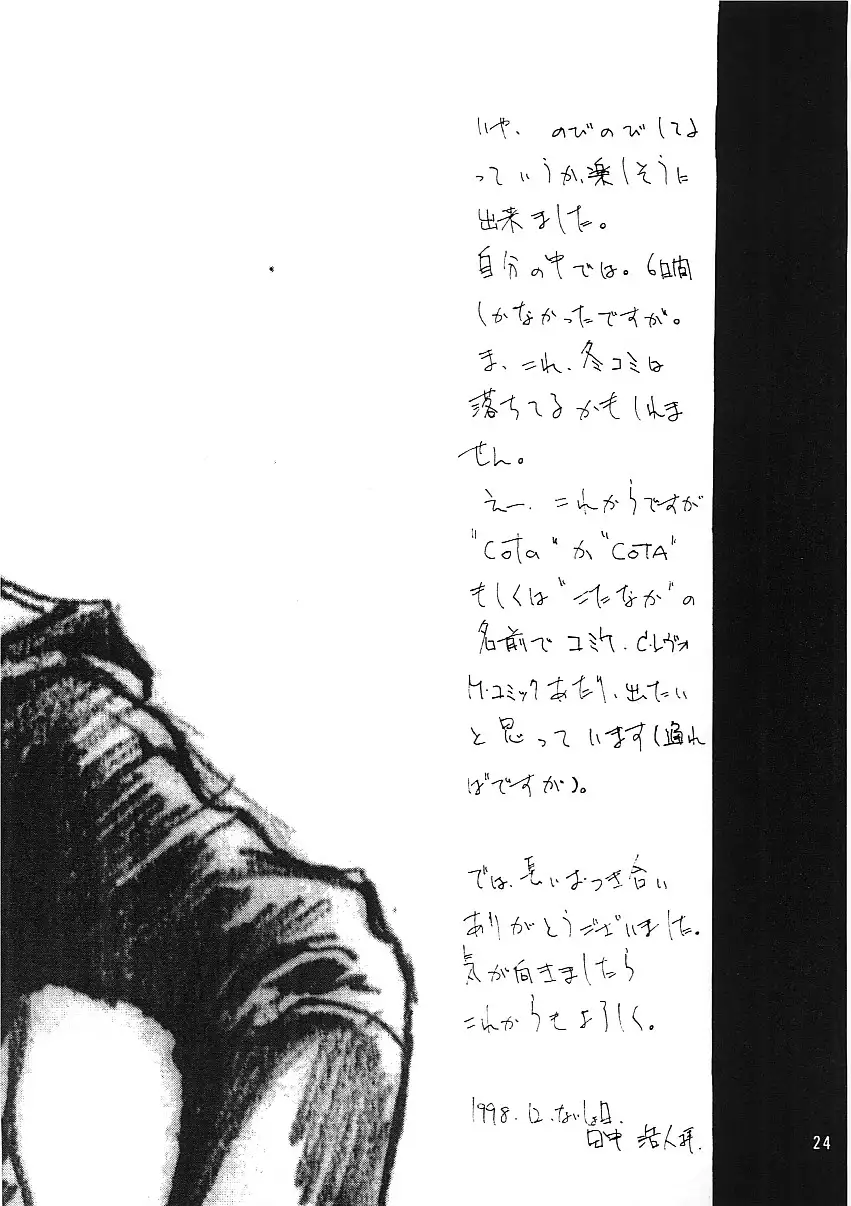 いや、のびのびしてよ
っていうか、楽しそうに
出来ました。
自分の中では。6日間
しかなかったですが。
ま、これ、冬コミは
落ちてるかもしれま
せん。
えー、これからですが
"Cota"か"COTA"
もしくは"こたなか"の
名前でコミケ、C・レヴォ
M・コミックあたり、出たい
と思っています(通れ
ばですが)。
では、長いおつき合い
ありがとうございました。
気が向きましたら
これからもよろしく。
1998.12.ないしょ日.
田中
24